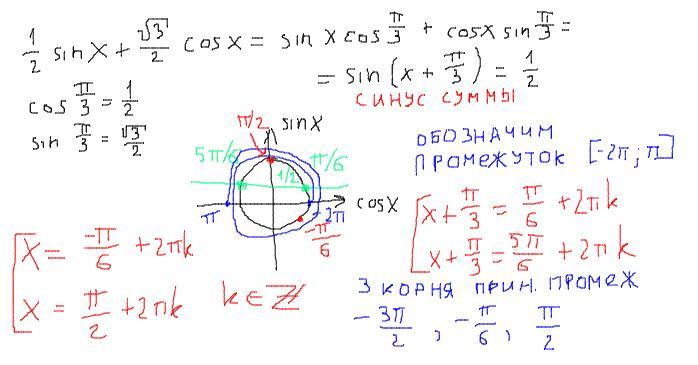 1/2 sin x + √3/2 cos x = sin x cos π/3 + cos x sin π/3 =
= sin(x + π/3) = 1/2
СИНУС СУММЫ
cos π/3 = 1/2
sin π/3 = √3/2
π/2 sin x
5π/6 π/6
1/2
π -2π cos x
-π/6
ОБОЗНАЧИМ
ПРОМЕЖУТОК [-2π; π]
x + π/3 = π/6 + 2πk
x + π/3 = 5π/6 + 2πk
x = -π/6 + 2πk
x = π/2 + 2πk
k ∈ Z
3 КОРНЯ ПРИН. ПРОМЕЖ
-3π/2, -π/6, π/2